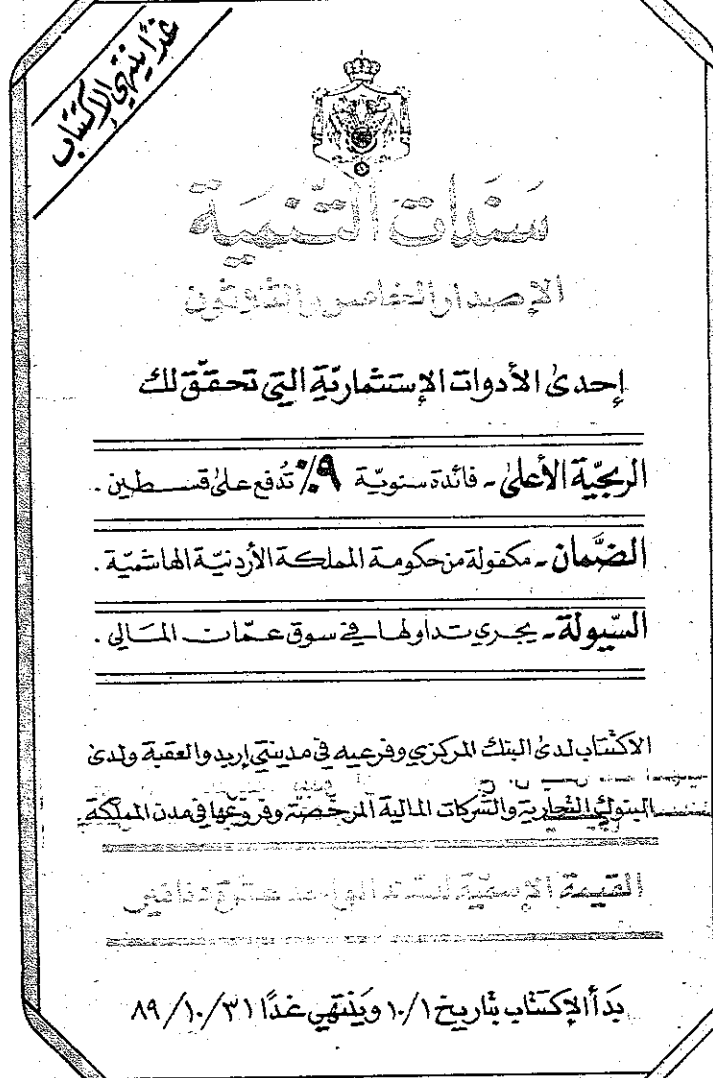 غدًا ينتهي الإكتتاب
سَنَدات التَّنمِيَة
الإصدار الخامس والثلاثون
إحدى الأدوات الإستثماريّة التي تحقّق لك
الربحيّة الأعلى - فائدة سنويّة ٩٪ تُدفع على قسطين .
الضَّمان - مكفولة من حكومة المملكة الأردنيّة الهاشميّة .
السّيولة - يجري تداولها في سوق عمّان المالي .
الاكتتاب لدى البنك المركزي وفرعيه في مدينتي إربد والعقبة ولدى
البنوك التجارية والشركات المالية المرخصة وفروعها في مدن المملكة
القيمة الإسميّة للسند الواحد عشرة دنانير
بَدأ الإكتتاب بتاريخ ١٠/١ وَينتهي غدًا ٨٩/١٠/٣١